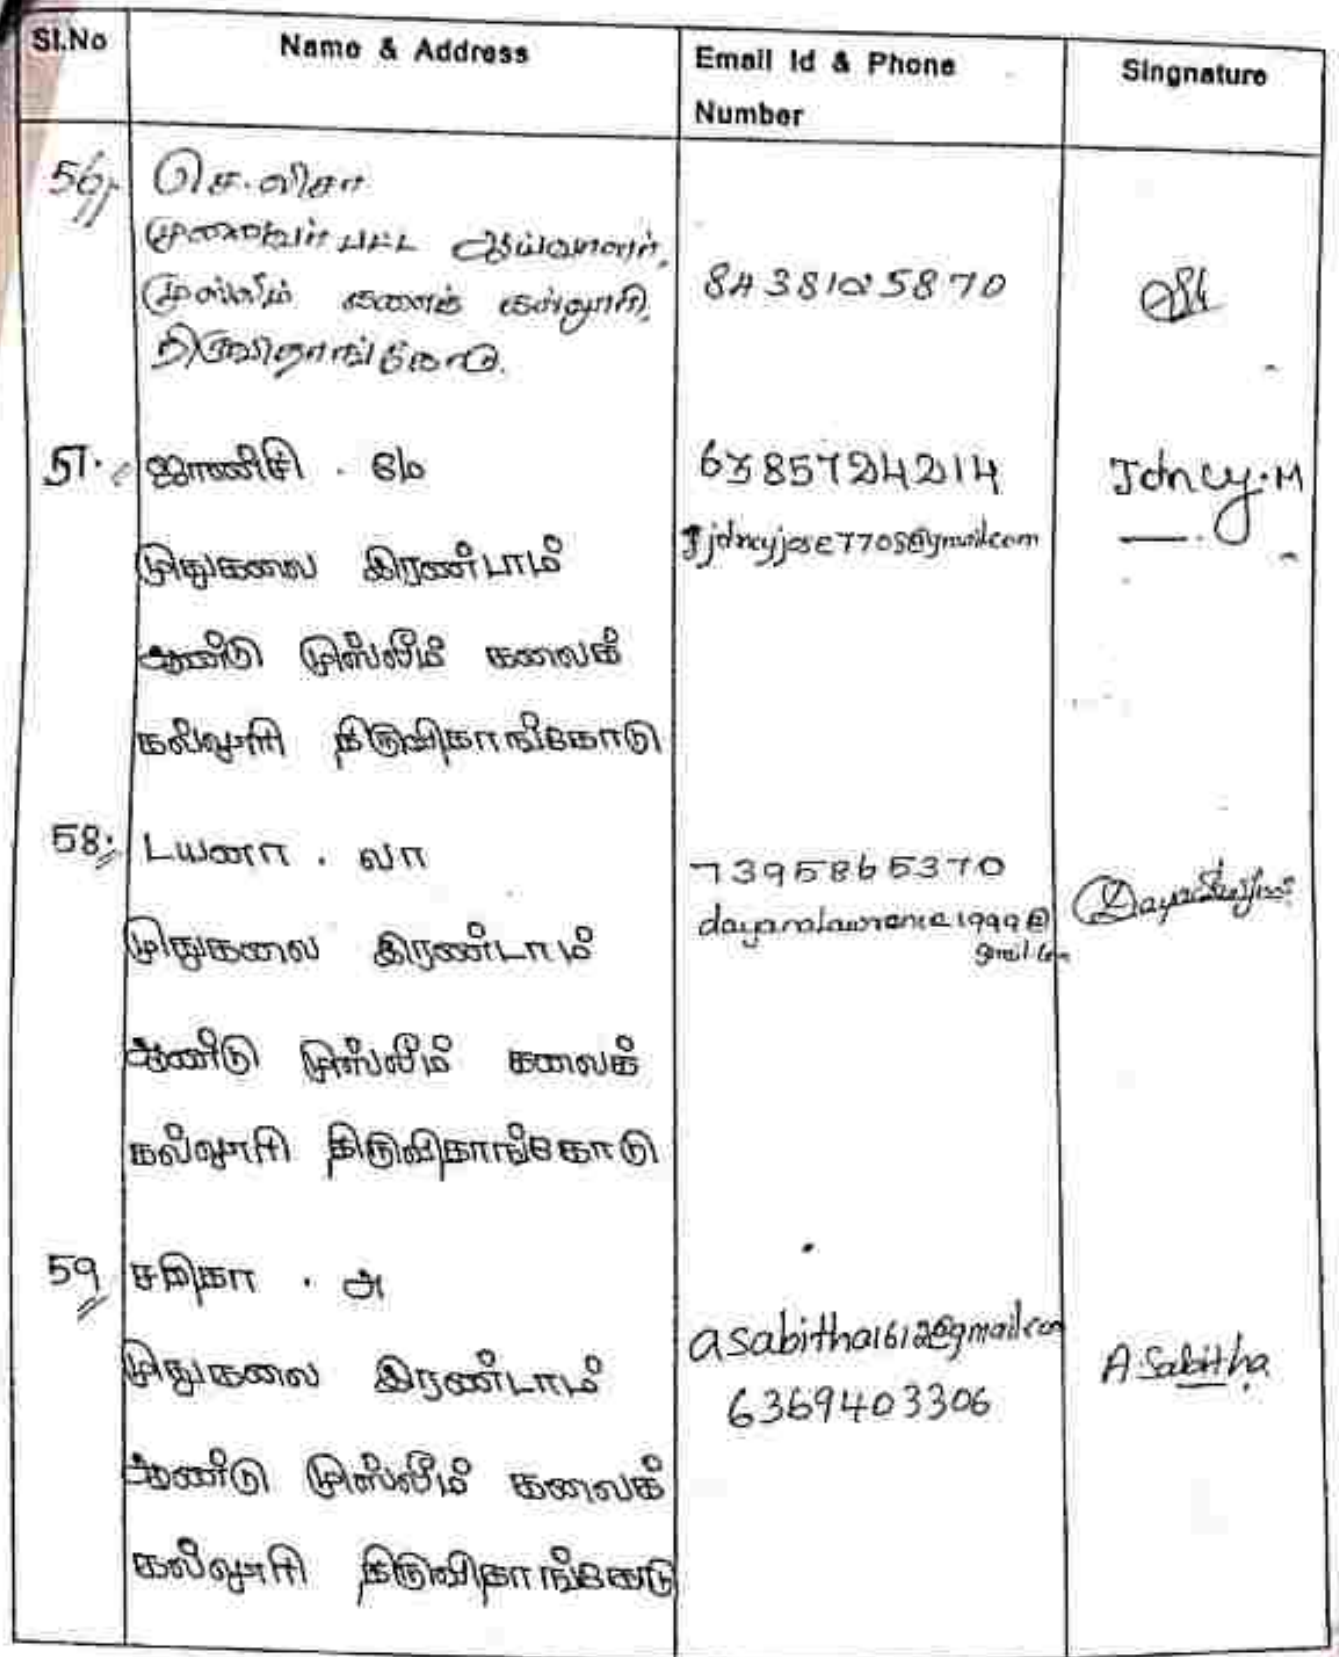 Sl.No Name & Address Email Id & Phone Number Singnature
56, செ. விசா
முனைவர் பட்ட ஆய்வாளர்,
முஸ்லீம் கலைக் கல்லூரி,
திருவிதாங்கோடு.
8438125870
57. ஜான்சி . மே
முதுகலை இரண்டாம்
ஆண்டு முஸ்லீம் கலைக்
கல்லூரி திருவிதாங்கோடு
6385724214
Jancy.M
58. டயனா . லா
முதுகலை இரண்டாம்
ஆண்டு முஸ்லீம் கலைக்
கல்லூரி திருவிதாங்கோடு
7395865370
dayanalawrence1999@
gmail.com
59 சபிதா . அ
முதுகலை இரண்டாம்
ஆண்டு முஸ்லீம் கலைக்
கல்லூரி திருவிதாங்கோடு
asabitha1612@gmail.com
6369403306
A Sabitha